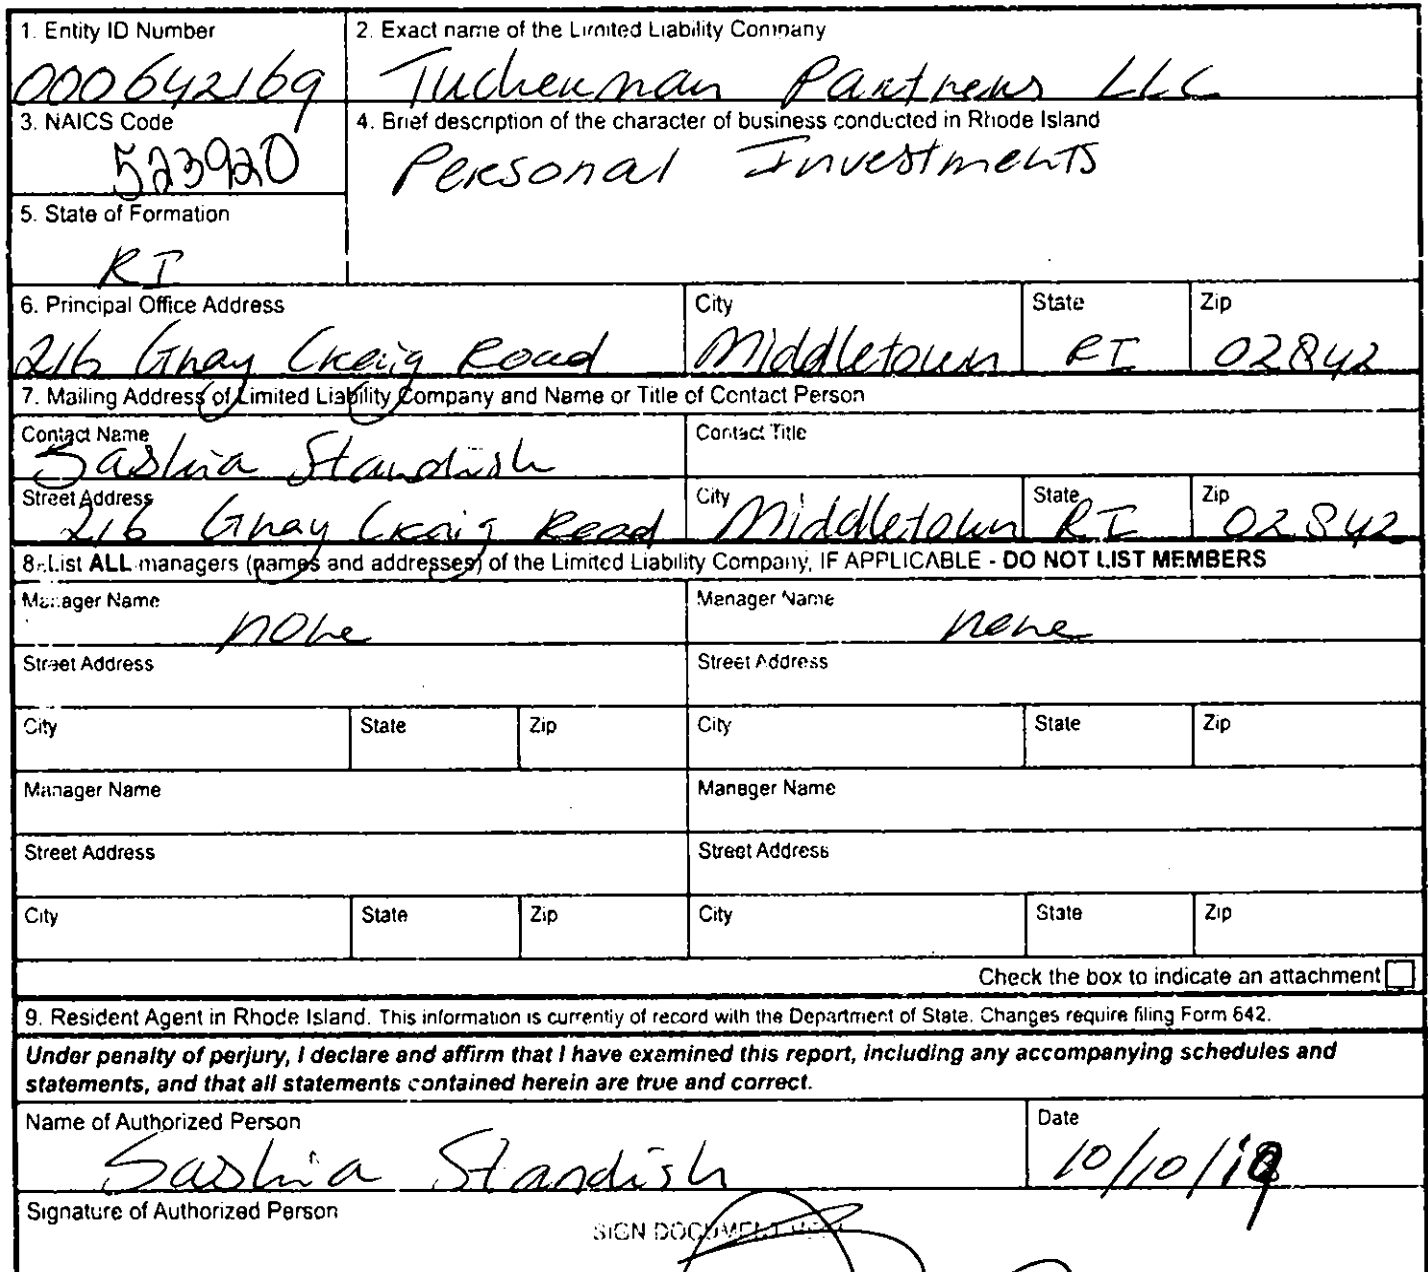 1. Entity ID Number
2. Exact name of the Limited Liability Company
000642169
Tuckerman Partners LLC
3. NAICS Code
4. Brief description of the character of business conducted in Rhode Island
523920
Personal Investments
5. State of Formation
RI
6. Principal Office Address City State Zip
216 Gray Craig Road Middletown RI 02842
7. Mailing Address of Limited Liability Company and Name or Title of Contact Person
Contact Name Contact Title
Sashia Standish
Street Address City State Zip
216 Gray Craig Road Middletown RI 02842
8. List ALL managers (names and addresses) of the Limited Liability Company, IF APPLICABLE - DO NOT LIST MEMBERS
Manager Name Manager Name
none none
Street Address Street Address
City State Zip City State Zip
Manager Name Manager Name
Street Address Street Address
City State Zip City State Zip
Check the box to indicate an attachment
9. Resident Agent in Rhode Island. This information is currently of record with the Department of State. Changes require filing Form 642.
Under penalty of perjury, I declare and affirm that I have examined this report, including any accompanying schedules and
statements, and that all statements contained herein are true and correct.
Name of Authorized Person Date
Sashia Standish 10/10/19
Signature of Authorized Person
SIGN DOCUMENT HERE